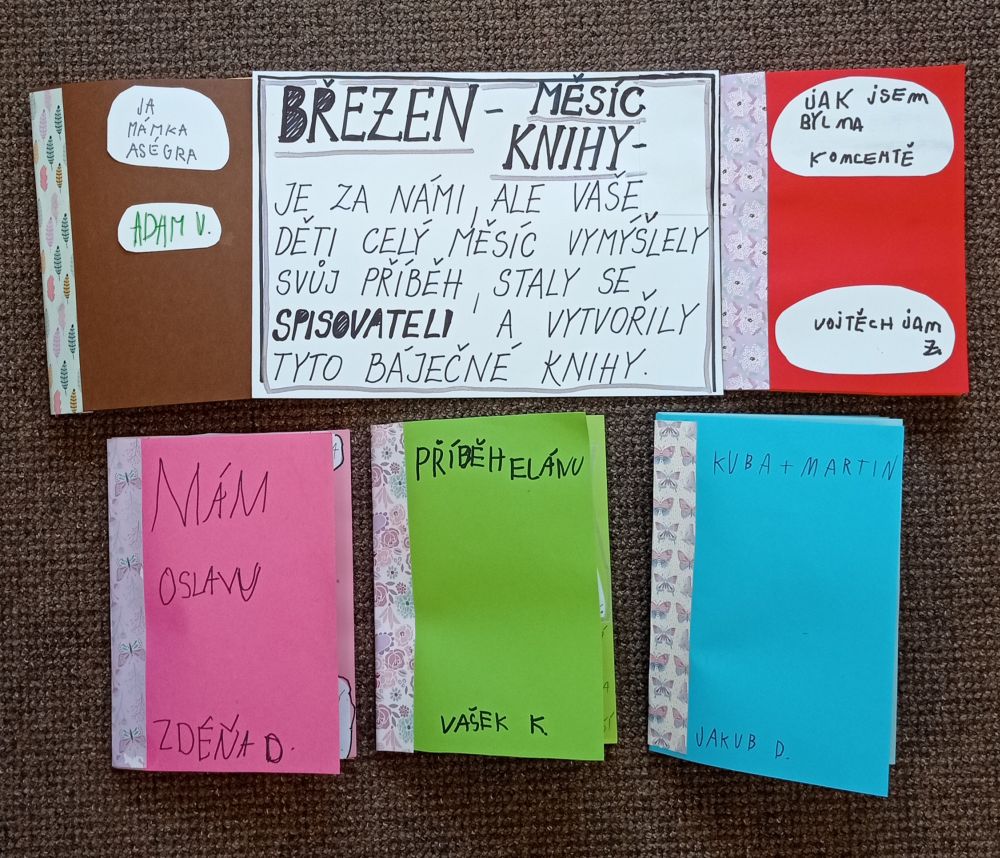 JA
MÁMKA
ASÉGRA
ADAM V.
BŘEZEN - MĚSÍC
KNIHY-
JE ZA NÁMI, ALE VAŠE
DĚTI CELÝ MĚSÍC VYMÝŠLELY
SVŮJ PŘÍBĚH, STALY SE
SPISOVATELI A VYTVOŘILY
TYTO BÁJEČNÉ KNIHY.
JAK JSEM
BYL MA
KOMCEMTĚ
VOJTĚCH JAM
Z.
MÁM
OSLAVU
ZDÉŇA D.
PŘÍBĚH ELÁNU
VAŠEK K.
KUBA + MARTIN
JAKUB D.